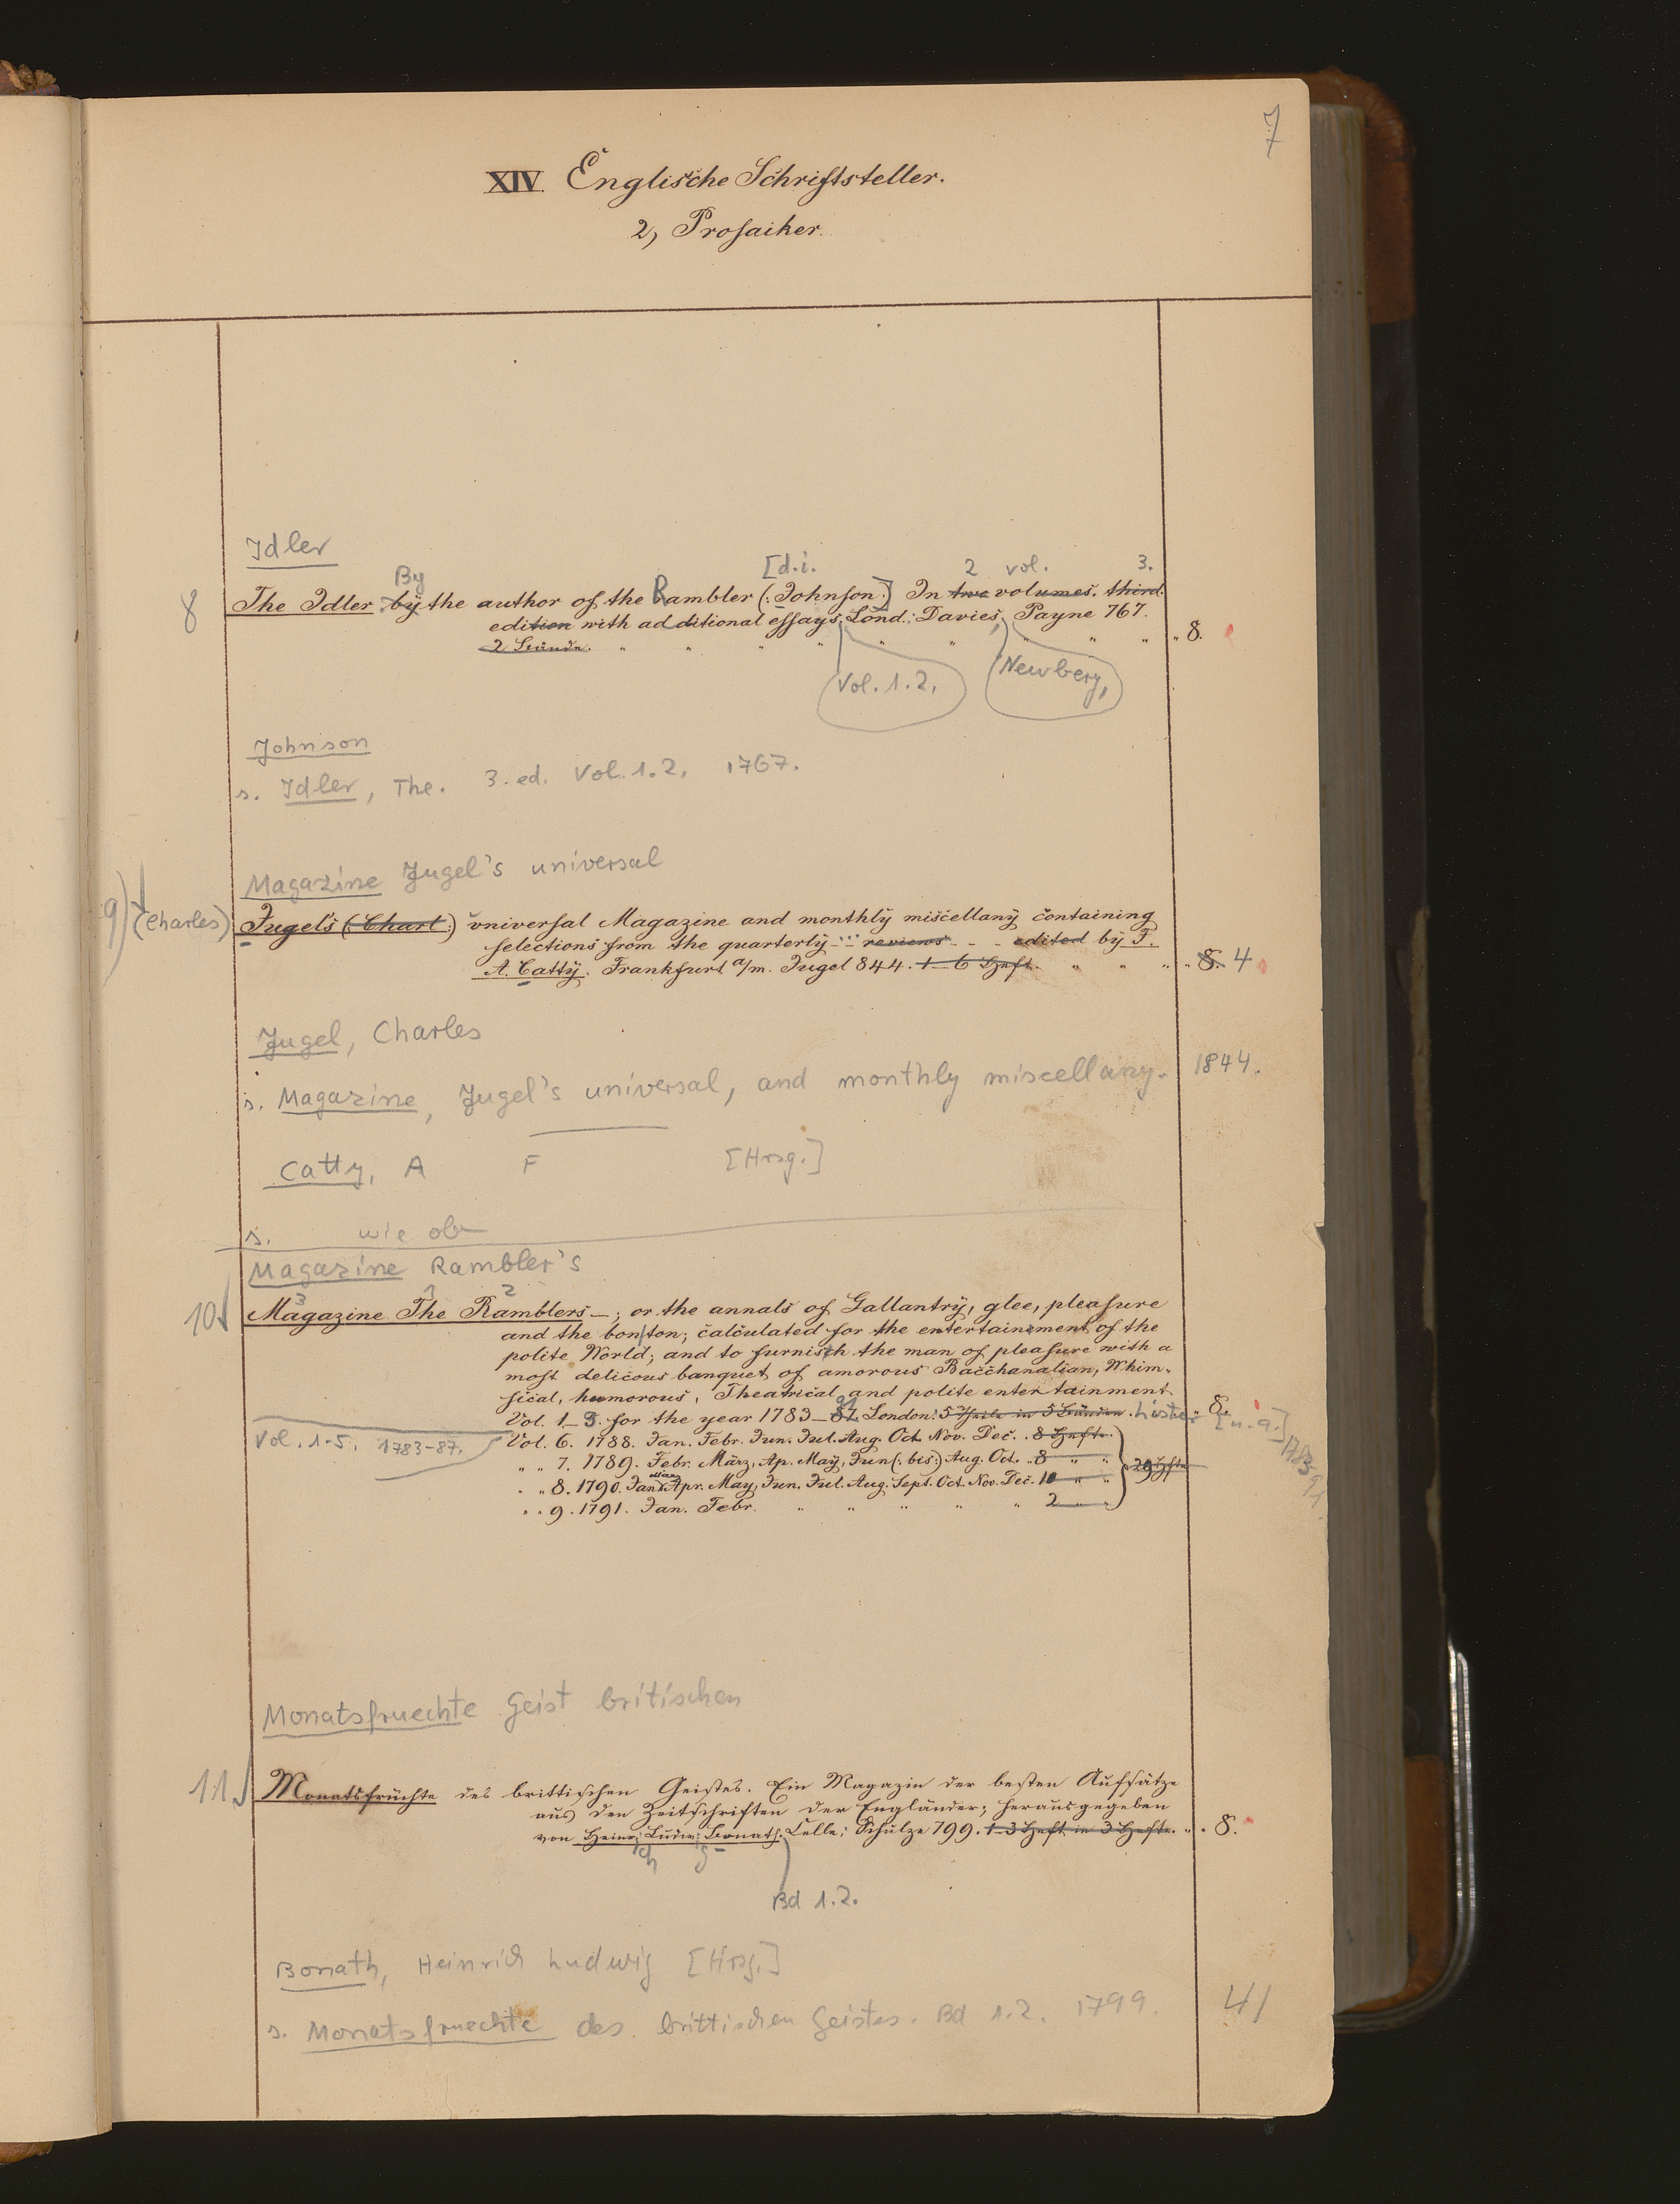 7
XIV. Englische Schriftsteller.
2, Prosaiker.
Idler
By [d.i. 2 vol. 3.
8 The Idler by the author of the Rambler (: Johnson :] In two volumes. third.
edition with additional essays. Lond.: Davies, Payne 767.
2 Bände. " " " " " " " " " 8.
Vol. 1.2. Newbery,
Johnson
s. Idler, The. 3. ed. Vol. 1.2. 1767.
Magazine Jugel's universal
9) (Charles) Jugel's (: Charl :) universal Magazine and monthly miscellany containing
selections from the quarterly ... reviews - - - edited by F.
A. Catty. Frankfurt a/m. Jugel 844. 1-6 Heft. " " " " 8. 4
Jugel, Charles
s. Magazine, Jugel's universal, and monthly miscellany. 1844.
Catty, A F [Hrsg.]
s. wie ob
Magazine Rambler's
3 1 2
10 Magazine The Ramblers —; or the annals of Gallantry, glee, pleasure
and the bon ton; calculated for the entertainement of the
polite World; and to furnisch the man of pleasure with a
most delicous banquet of amorous Bacchanalian, Whim-
sical, humorous, Theatrical and polite entertainment
91
Vol. 1-9. for the year 1783-87. London: 5 Theile in 5 Bänden. Lister [u.a.] 8. 1783-91
Vol. 1-5. 1783-87. Vol. 6. 1788. Jan. Febr. Jun. Jul. Aug. Oct. Nov. Dec. . 8 Hefte.
" " 7. 1789. Febr. März, Ap. May, Jun (: bis :) Aug. Oct. " 8 " " 29 Hfte
" " 8. 1790. Jan. März Apr. May, Jun. Jul. Aug. Sept. Oct. Nov. Dec. 10 " "
" " 9. 1791. Jan. Febr. " " " " " 2 " "
Monatsfruechte Geist britischen
11 Monatsfrüchte des brittischen Geistes. Ein Magazin der besten Aufsätze
aus den Zeitschriften der Engländer; herausgegeben
von Heinr: Ludw: Bonath. Celle; Schulze 799. 1-3 Heft in 3 Hefte. " . 8.
ich ig
Bd 1.2.
Bonath, Heinrich Ludwig [Hrsg.]
s. Monatsfruechte des brittischen Geistes. Bd 1.2. 1799. 41